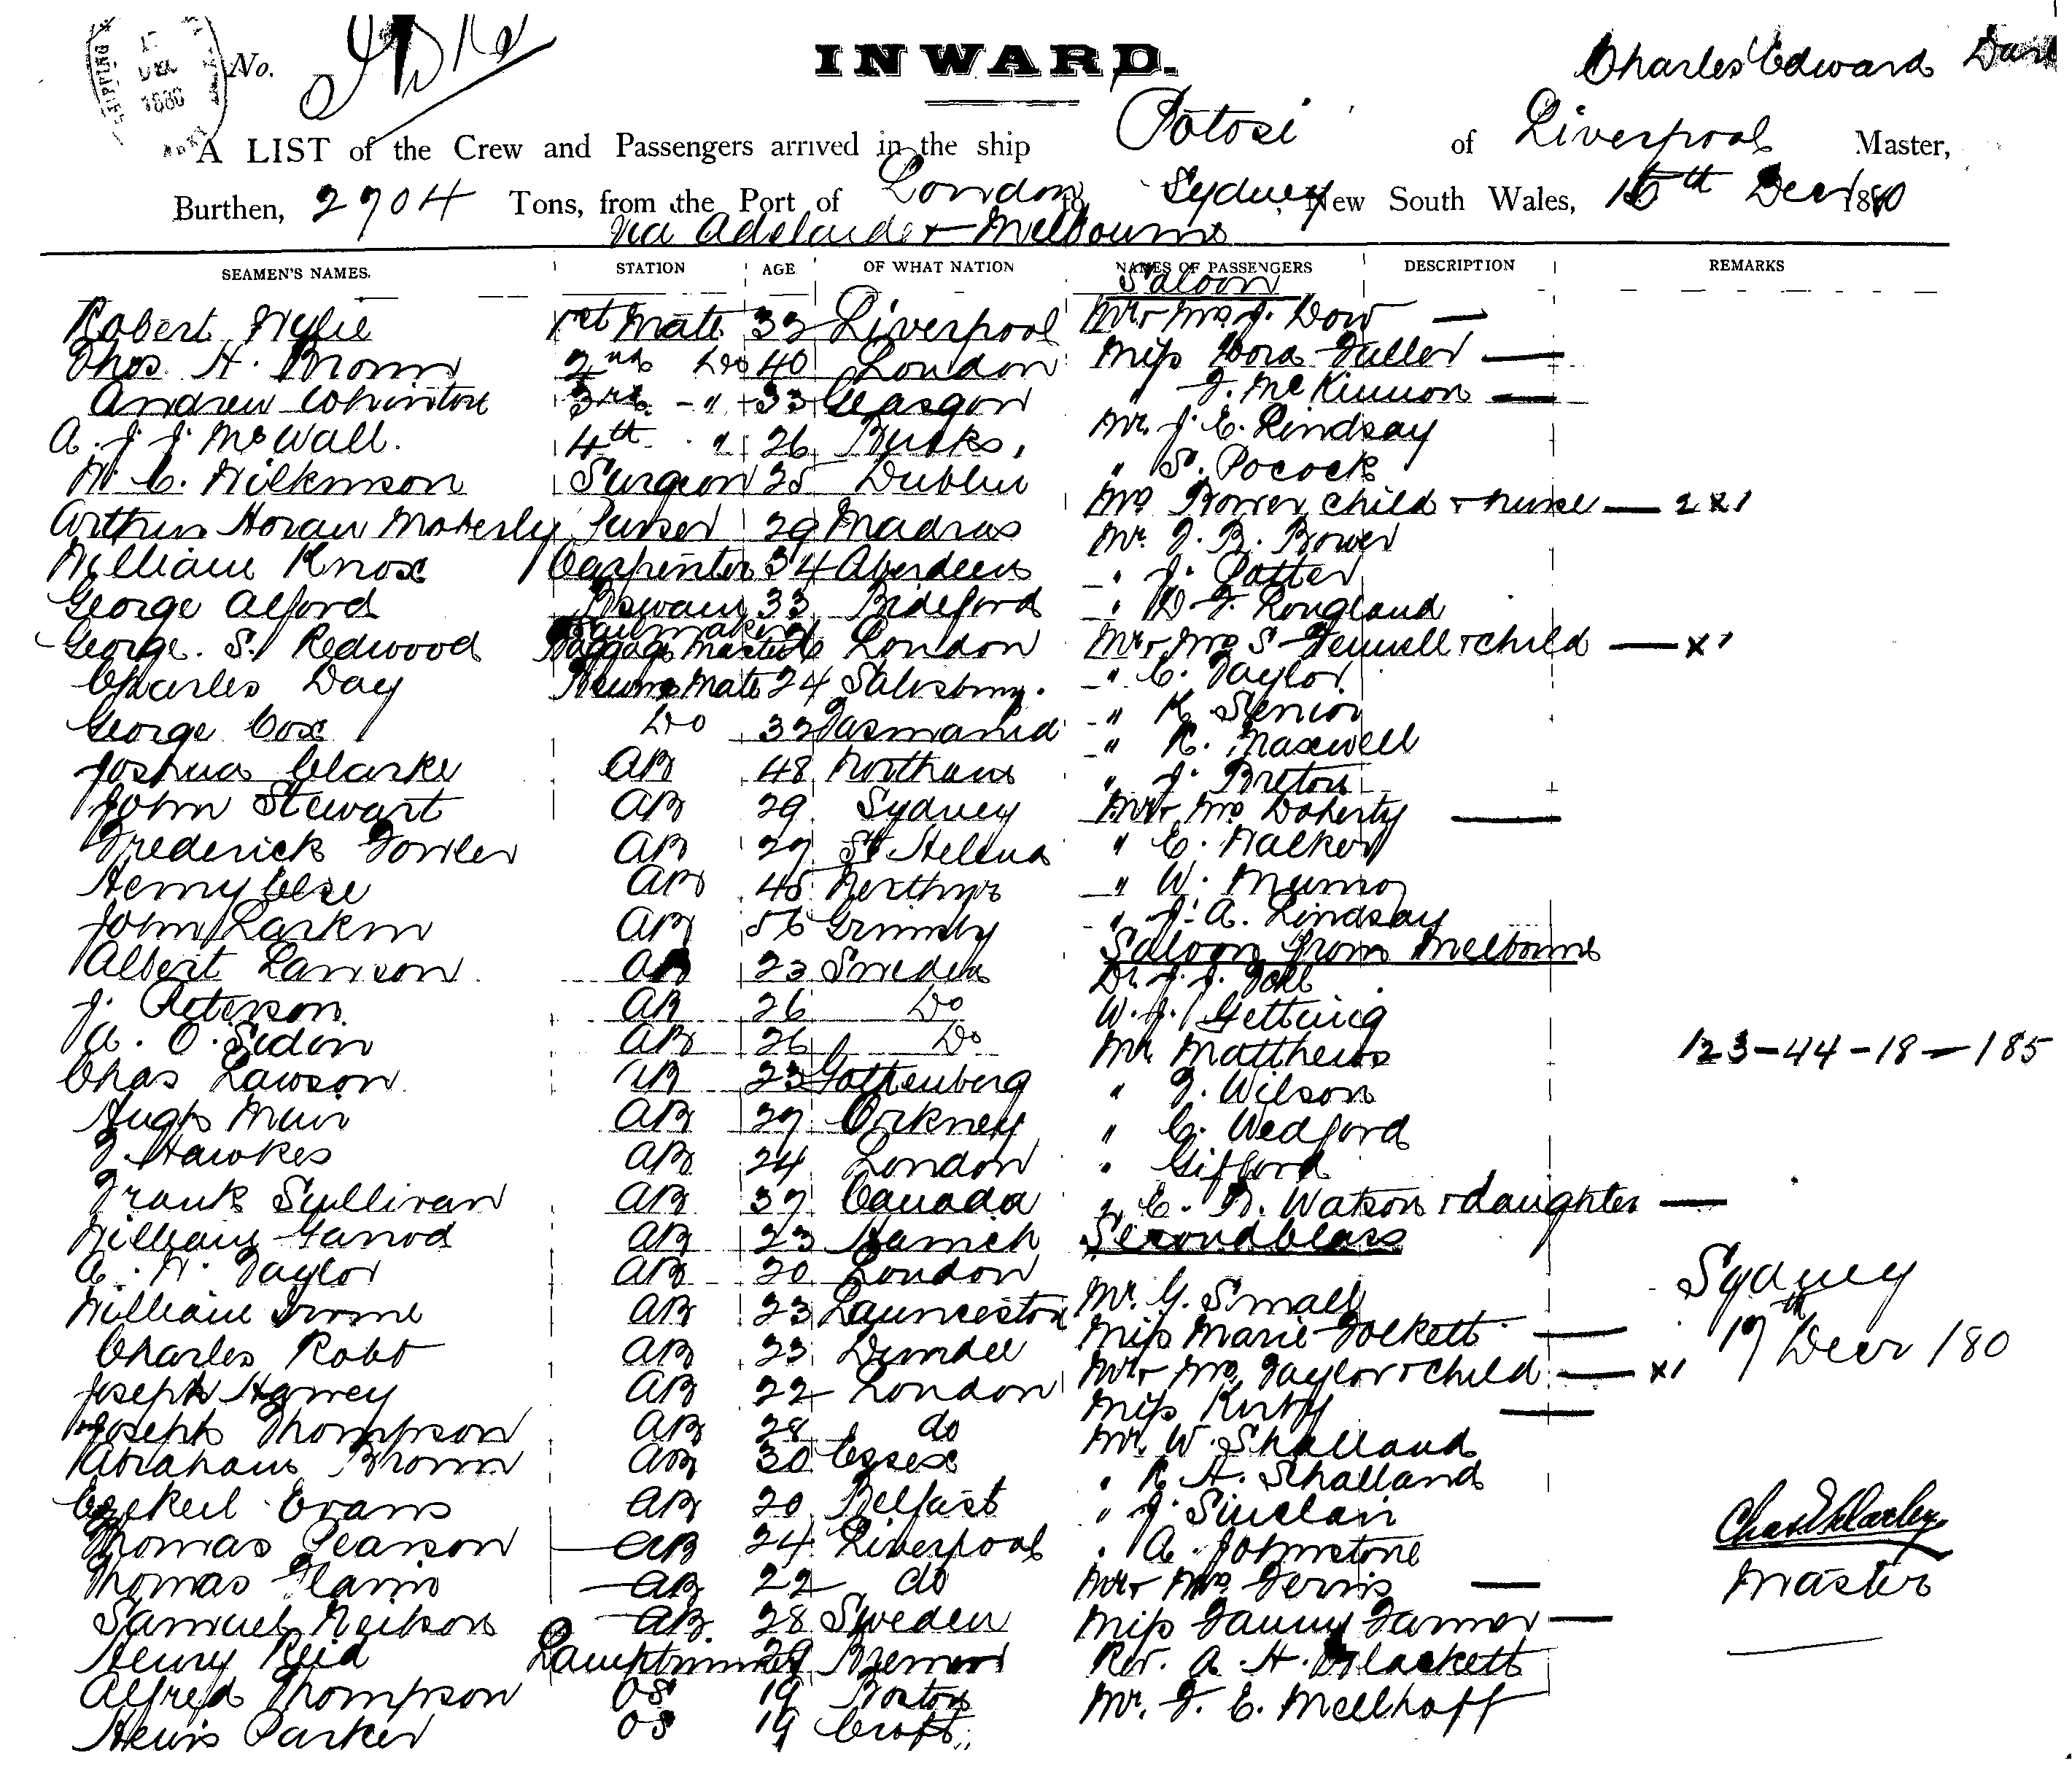 SHIPPING
DEC
1880
No.
INWARD.
Charles Edward
A LIST of the Crew and Passengers arrived in the ship Potosi of Liverpool Master,
Burthen, 2704 Tons, from the Port of London to Sydney, New South Wales, Decr 1880
Via Adelaide & Melbourne
SEAMEN'S NAMES. STATION AGE OF WHAT NATION NAMES OF PASSENGERS DESCRIPTION REMARKS
Saloon
Robert Wylie 1st Mate 33 Liverpool Mr & Mrs J. Dow
Thos. H. Brown 2nd Do 40 London Miss Dora Fuller
Andrew Whinton 3rd " 33 Glasgow " J. McKinnon
A. J. J. McWall. 4th " 26 Bucks, Mr. J. E. Lindsay
W. C. Wilkinson Surgeon 25 Dublin " S. Pocock
Arthur Horau Moberly Purser 29 Madras Mrs Bower, child & nurse — 2 x 1
William Knox Carpenter 34 Aberdeen Mr. J. B. Bower
George Alford Bswain 33 Bideford " J. Potter
George. S. Redwood Sailmaker Baggage Master London " D. F. Rougland
Charles Day 24 Salisbury. Mr & Mrs S. Fennell & child — x 1
George Cox Do 32 Tasmania " C. Taylor
Joshua Clarke AB 48 Northam " K. Senior
John Stewart AB 29 Sydney " R. Maxwell
Frederick Fowler AB 27 St Helena " J. Breton
Henry Else AB 45 Mr & Mrs Doherty
John Larkin AB 56 Grimsby " E. Walker
Albert Lawson AB 23 Sweden " W. Munro
J. Peterson AB 26 Do " J. A. Lindsay
A. O. Sedin AB 26 Do Saloon from Melbourne
Chas Lawson AB 23 Gothenberg Dr. J. J.
Hugh Muir AB 27 Orkney W. J. Getting
J. Hawkes AB 24 London Mr. Matthews 123-44-18-185
Frank Sullivan AB 37 Canada " J. Wilson
William Garrod AB 23 Harwich " C. Wedford
A. W. Taylor AB 20 London " Gifford
William Irvine AB 23 Launceston " C. B. Watson & daughter
Charles Robb AB 23 Dundee Second Class
Joseph Harvey AB 22 London Mr. G. Small
Joseph Thompson AB 28 do Miss Marie Folkett
Abraham Brown AB 30 Essex Mr & Mrs Taylor & child — x 1
Ezekeil Evans AB 20 Belfast Miss Kirby
Thomas Pearson AB 24 Liverpool Mr. W. Shalland
Thomas AB 22 do " R. H. Shalland
Samuel Neilson AB. 28 Sweden " J. Sinclair
Henry Reid Lamptrimmer 29 Bremen " A. Johnstone
Alfred Thompson OS 19 Boston Mr & Mrs Ferris
Parker OS 19 Croft. Miss Fanny Farmer
Rev. A. H.
Mr. F. E. Mellhoff
Sydney
17th Decr /80
Master